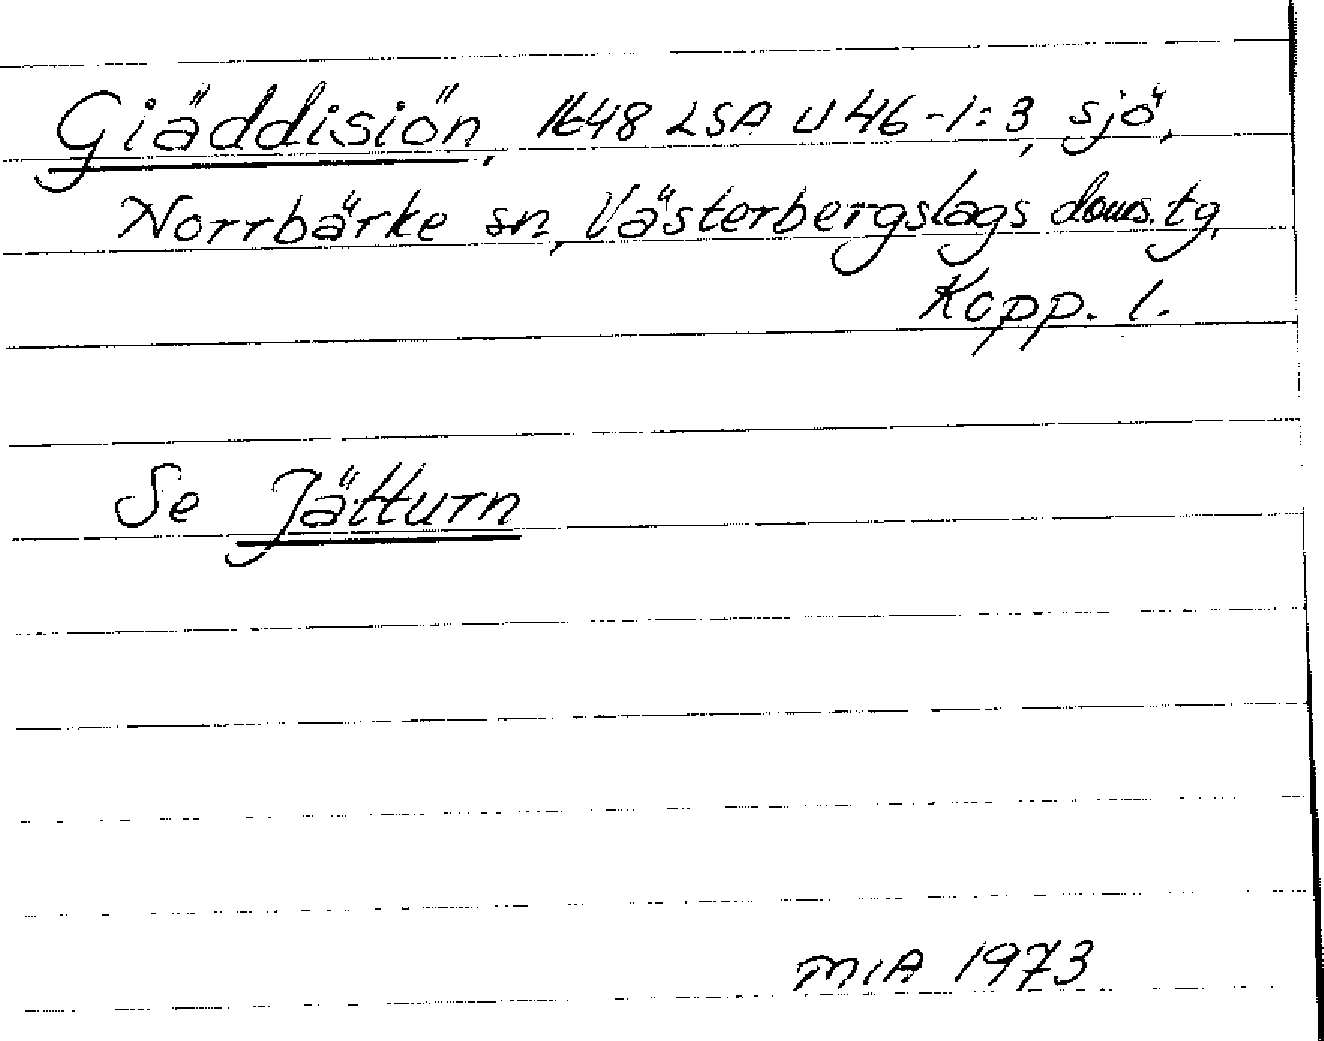 Giäddisiön, 1648 LSA U 46-1:3, sjö,
Norrbärke sn, Västerbergslags doms.tg,
Kopp. l.
Se Jätturn
MIA 1973